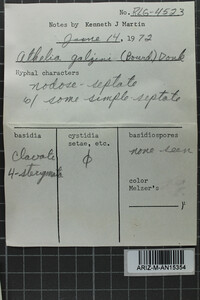 No. RLG-4523
Notes by Kenneth J Martin
June 14, 1972
Athelia galzinii (Bourd) Donk
Hyphal characters
nodose-septate
w/ some simple septate
basidia
cystidia
setae, etc.
basidiospores
clavate
4-sterigmata
φ
none seen
color
Melzer's
μ
ARIZ-M-AN15354